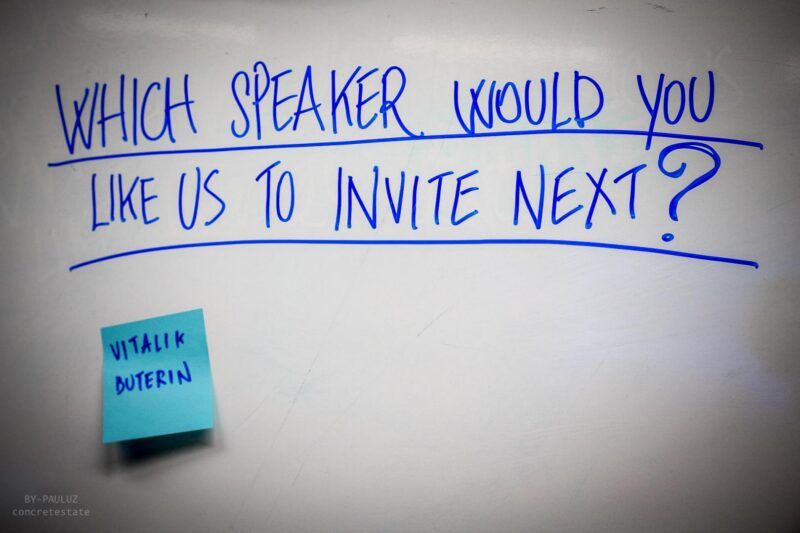 WHICH SPEAKER WOULD YOU
LIKE US TO INVITE NEXT?
VITALIK
BUTERIN
BY-PAULUZ
concretestate